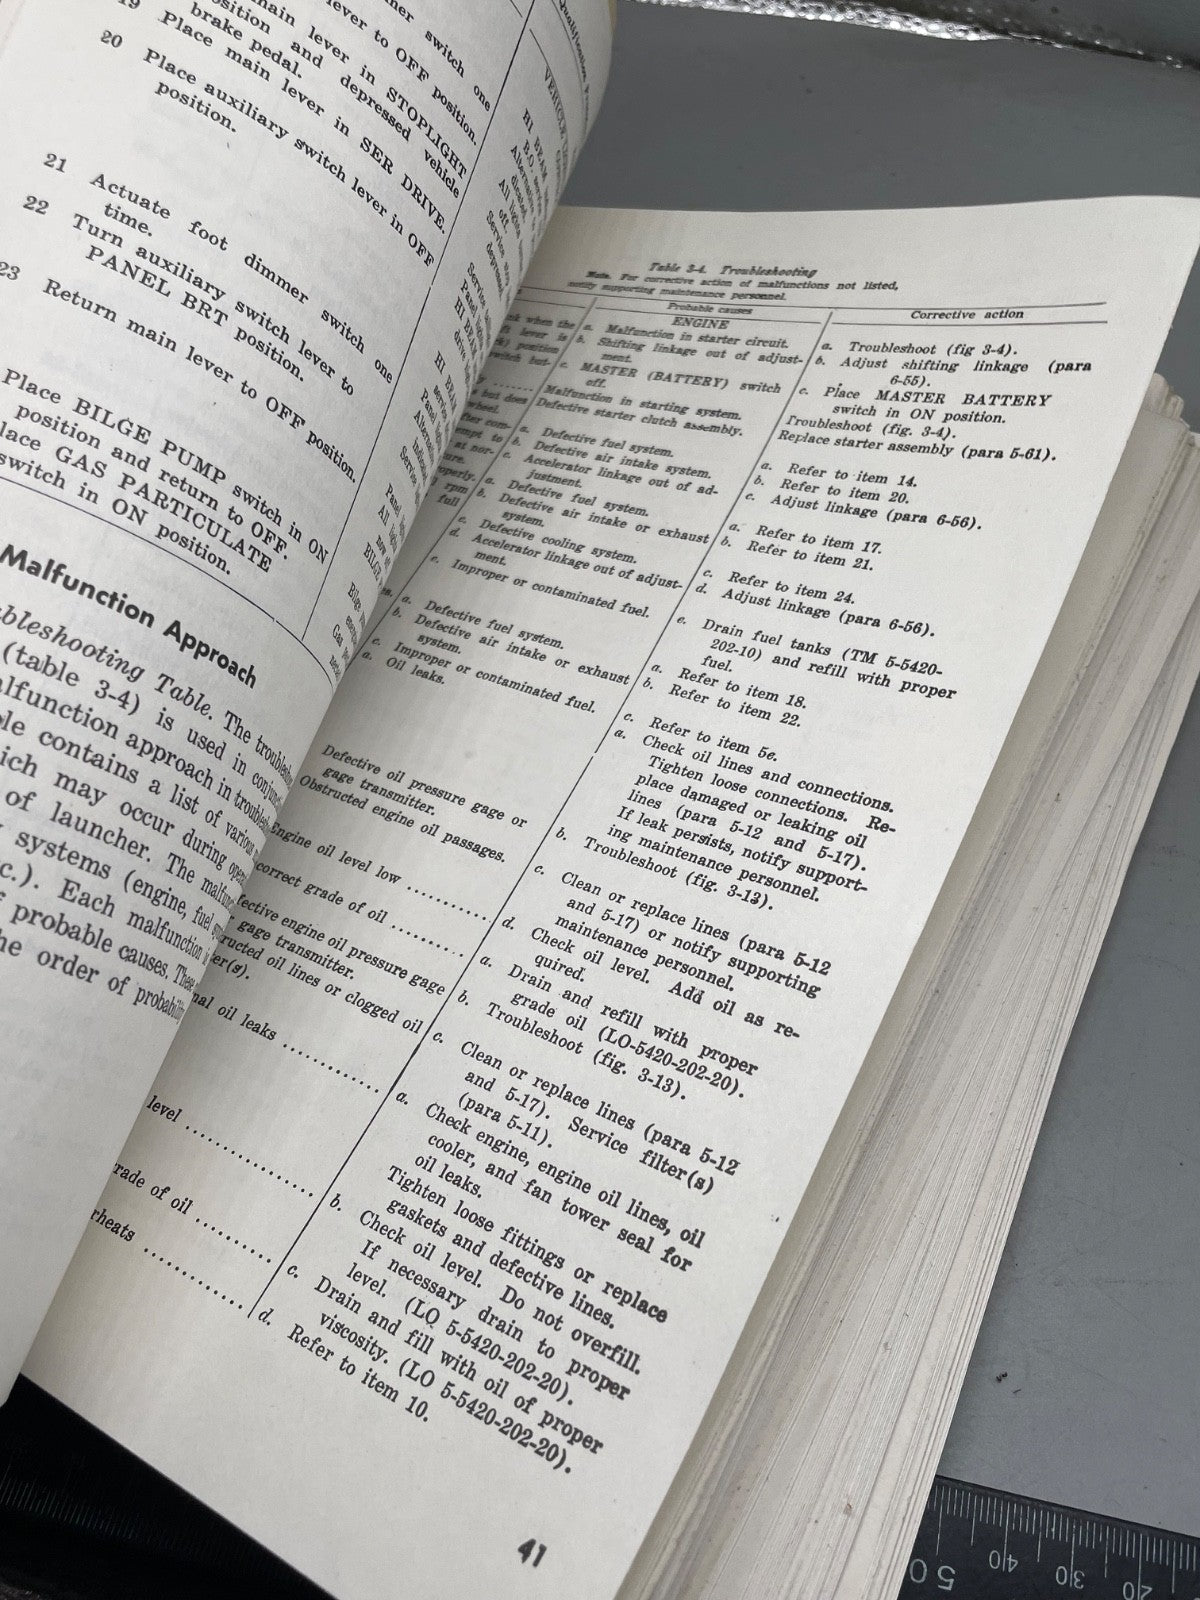 ner switch one
ever to OFF position.
main lever in STOPLIGHT
position and depressed vehicle
brake pedal.
19 Place main lever in SER DRIVE.
20 Place auxiliary switch lever in OFF
position.
21 Actuate foot dimmer switch one
time.
22 Turn auxiliary switch lever to
PANEL BRT position.
23 Return main lever to OFF position.
Place BILGE PUMP switch in ON
position and return to OFF.
lace GAS PARTICULATE
switch in ON position.
Malfunction Approach
bleshooting Table. The
(table 3-4) is used in
lfunction approach in
le contains a list of various
ich may occur during
of launcher. The
systems (engine, fuel
c.). Each malfunction
f probable causes. These
he order of probability
Qualification,
HI BEAM
B.O.
All lights
off.
Service
Panel
HI BEAM
HI BEAM
Panel
Service
Panel
All
BILGE
Table 3-4. Troubleshooting
Note. For corrective action of malfunctions not listed,
notify supporting maintenance personnel.
Probable causes
Corrective action
ENGINE
nk when the
ft lever is
position
switch but-
but does
wheel.
a. Malfunction in starter circuit.
b. Shifting linkage out of adjust-
ment.
c. MASTER (BATTERY) switch
off.
Malfunction in starting system.
Defective starter clutch assembly.
a. Defective fuel system.
b. Defective air intake system.
c. Accelerator linkage out of ad-
justment.
a. Defective fuel system.
b. Defective air intake or exhaust
system.
c. Defective cooling system.
d. Accelerator linkage out of adjust-
ment.
e. Improper or contaminated fuel.
a. Defective fuel system.
b. Defective air intake or exhaust
system.
c. Improper or contaminated fuel.
a. Oil leaks.
Defective oil pressure gage or
gage transmitter.
Obstructed engine oil passages.
Engine oil level low ............
correct grade of oil ..........
fective engine oil pressure gage
gage transmitter.
tructed oil lines or clogged oil
er(s).
nal oil leaks ..............
level ..................
rade of oil ...........
rheats ..............
a. Troubleshoot (fig 3-4).
b. Adjust shifting linkage (para
6-55).
c. Place MASTER BATTERY
switch in ON position.
Troubleshoot (fig. 3-4).
Replace starter assembly (para 5-61).
a. Refer to item 14.
b. Refer to item 20.
c. Adjust linkage (para 6-56).
a. Refer to item 17.
b. Refer to item 21.
c. Refer to item 24.
d. Adjust linkage (para 6-56).
e. Drain fuel tanks (TM 5-5420-
202-10) and refill with proper
fuel.
a. Refer to item 18.
b. Refer to item 22.
c. Refer to item 5e.
a. Check oil lines and connections.
Tighten loose connections. Re-
place damaged or leaking oil
lines (para 5-12 and 5-17).
If leak persists, notify support-
ing maintenance personnel.
b. Troubleshoot (fig. 3-13).
c. Clean or replace lines (para 5-12
and 5-17) or notify supporting
maintenance personnel.
d. Check oil level. Add oil as re-
quired.
a. Drain and refill with proper
grade oil (LO-5420-202-20).
b. Troubleshoot (fig. 3-13).
c. Clean or replace lines (para 5-12
and 5-17). Service filter(s)
(para 5-11).
a. Check engine, engine oil lines, oil
cooler, and fan tower seal for
oil leaks.
Tighten loose fittings or replace
gaskets and defective lines.
b. Check oil level. Do not overfill.
If necessary drain to proper
level. (LO 5-5420-202-20).
c. Drain and fill with oil of proper
viscosity. (LO 5-5420-202-20).
d. Refer to item 10.
41
50 40 30 20